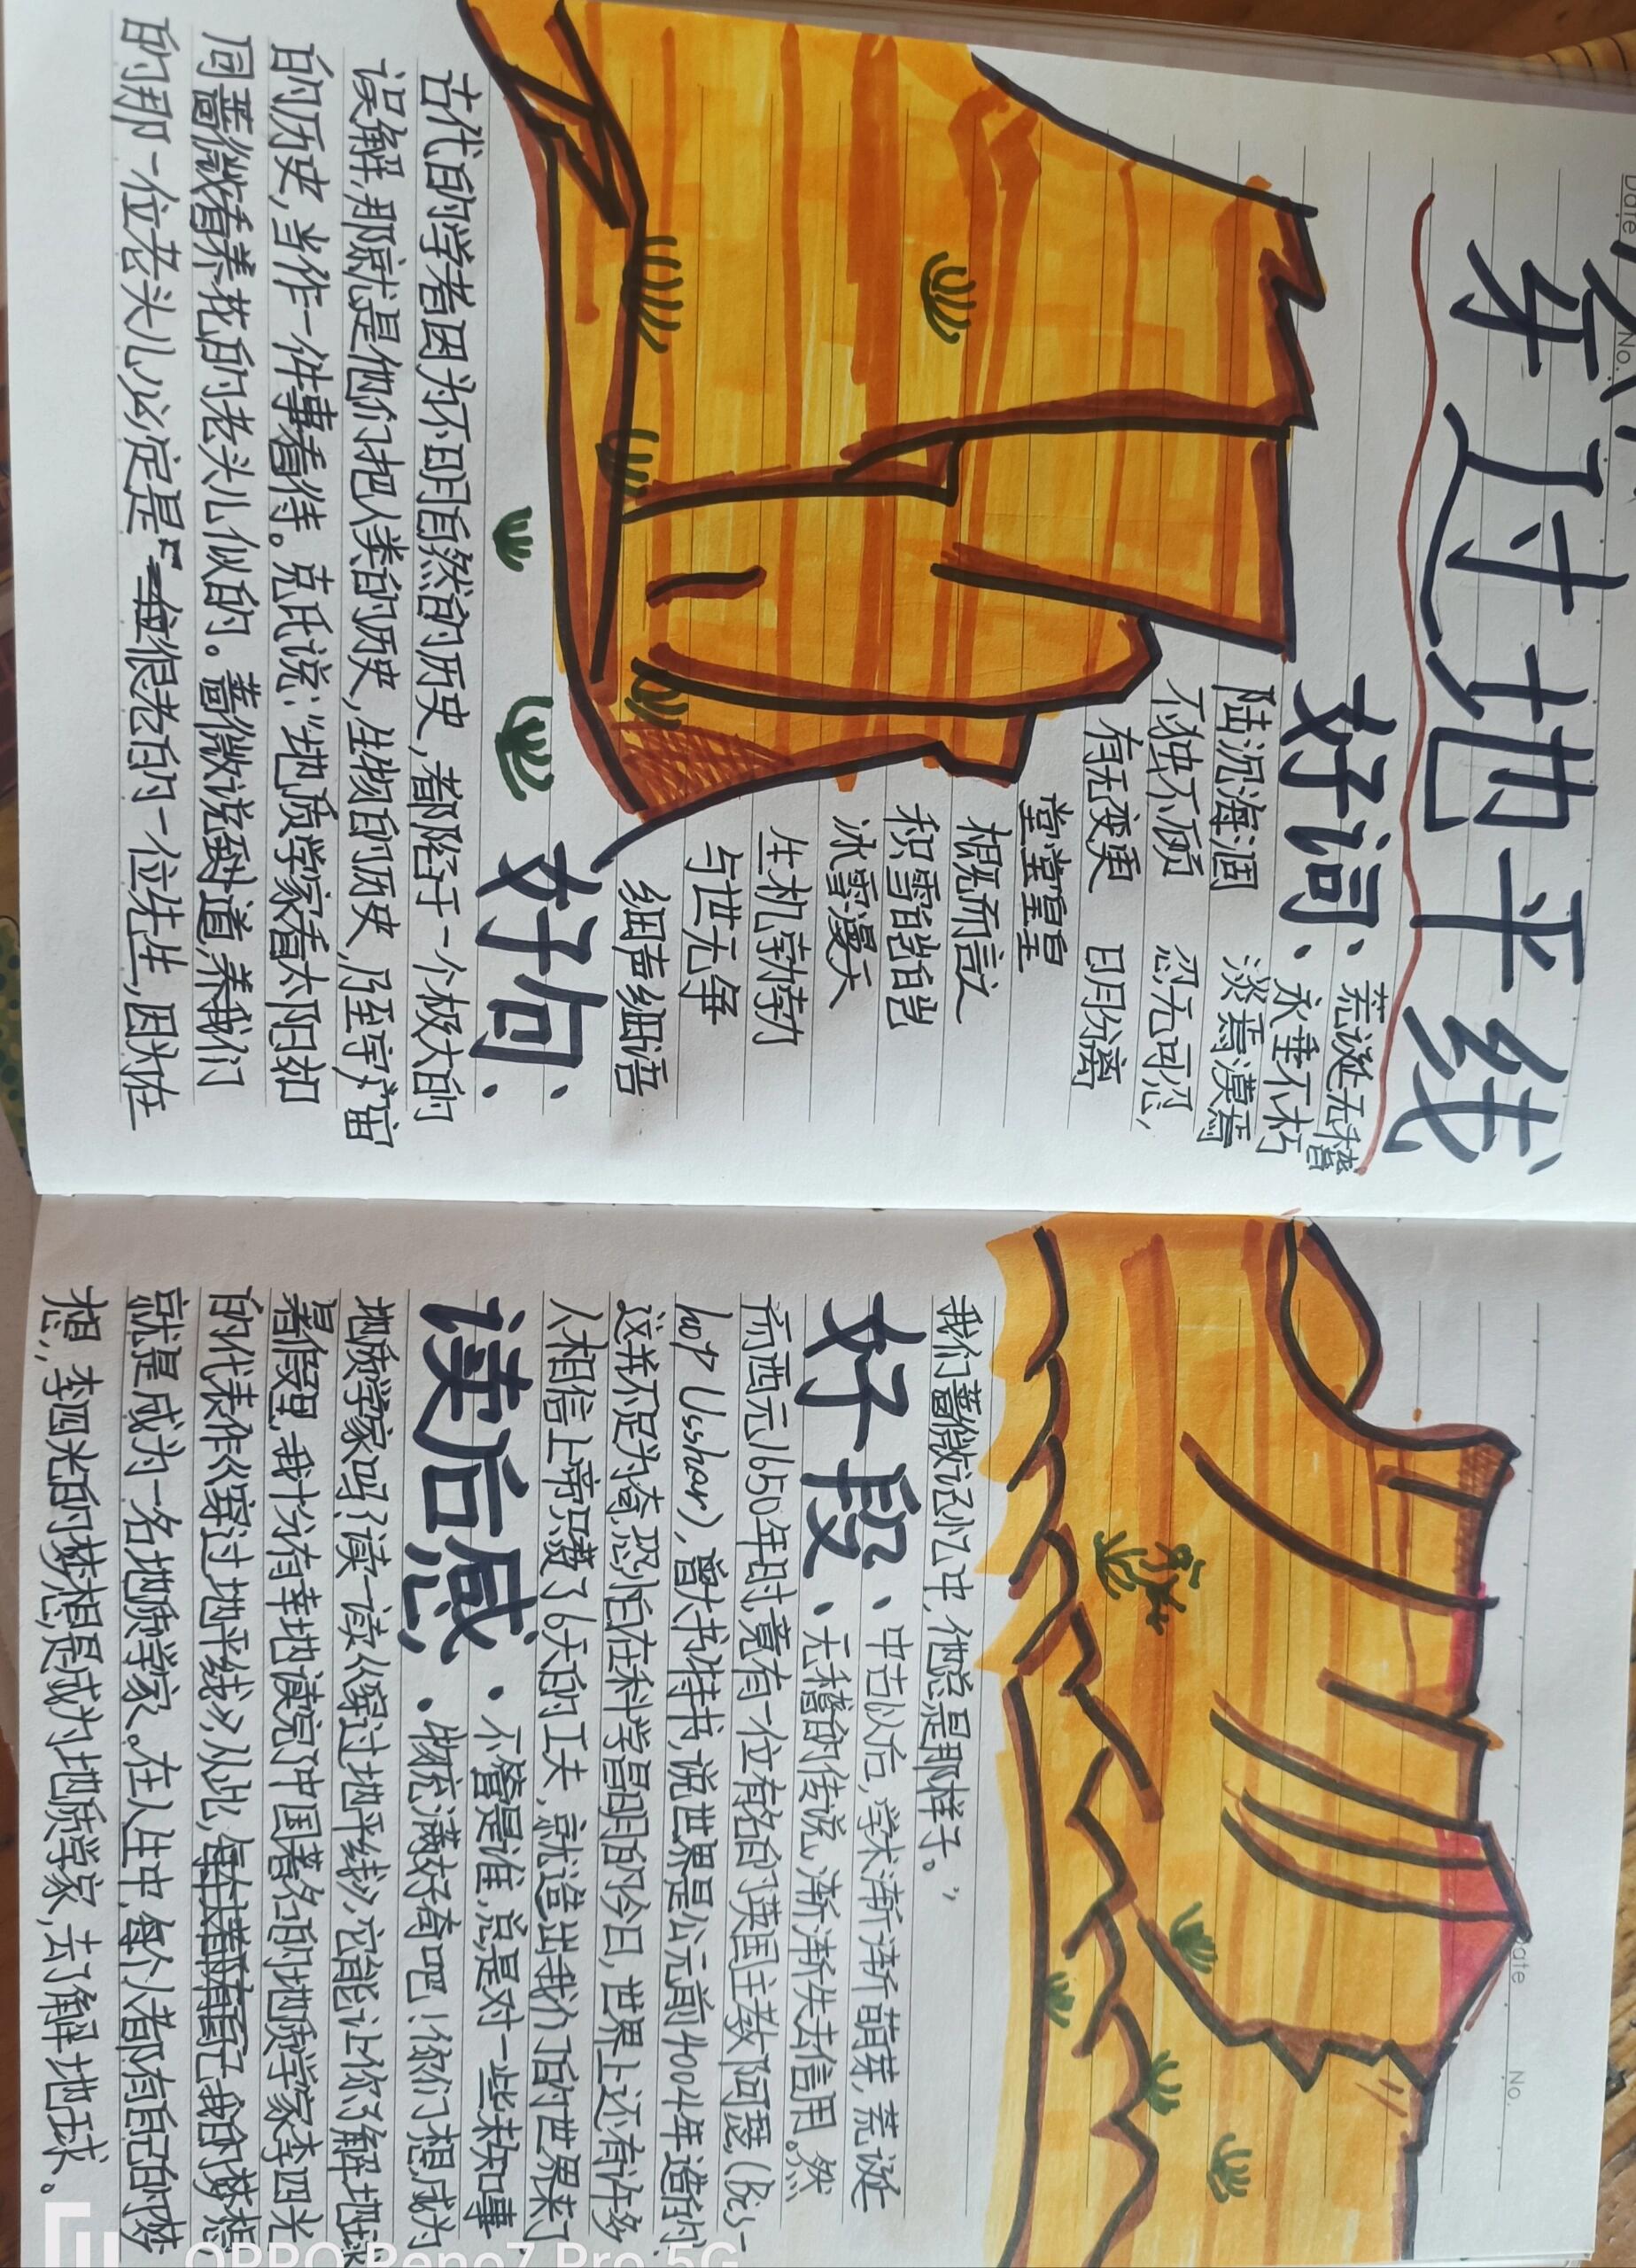 Date
No.
穿过地平线
好词、荒诞无稽
永垂不朽
陆沉海涸 淡焉漠焉
不独不顾 忍无可忍,
有无变更 日月分离
堂堂皇皇
概而言之
积雪皑皑
冰雪漫天
生机勃勃
与世无争
细声细语
好句、
古代的学者因为不明自然的历史,都陷于一个极大的
误解,那就是他们把人类的历史,生物的历史,乃至宇宙
的历史,当作一件事看待。克氏说:“地质学家看太阳如
同蔷薇看养花的老头儿似的。蔷薇说到道,养我们
的那一位老头儿必定是“很老的一位先生,因为在
Date
No.
我们蔷薇记忆中,他总是那样子。”
好段、中古以后,学术渐渐萌芽,荒诞
无稽的传说,渐渐失去信用。然
而西元1650年时,竟有一位有名的英国主教阿瑟(Bis-
hop Ussher),曾大书特书,说世界是公元前4004年造的,
这并不足为奇,恐怕在科学昌明的今日,世界上还有许多
人相信上帝只费了6天的工夫,就造出我们的世界来了
读后感、不管是谁,总是对一些未知事
物充满好奇吧!你们想成为
地质学家吗?读一读《穿过地平线》,它能让你了解地球
暑假里,我十分有幸地读完了中国著名的地质学家李四光
的代表作《穿过地平线》,从此,我的梦想
就是成为一名地质学家。在人生中,每个人都有自己的梦
想,李四光的梦想是成为地质学家,去了解地球。
OPPO Reno7 Pro 5G